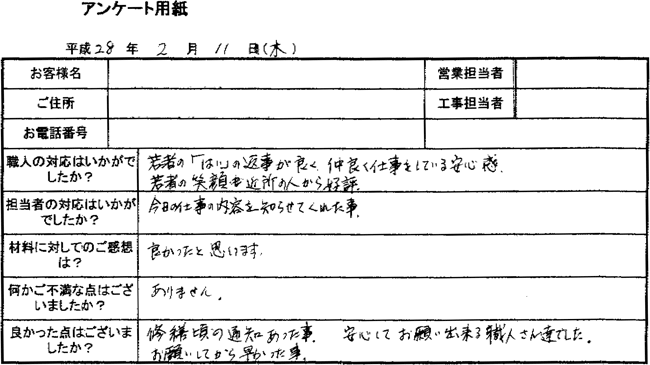 アンケート用紙
平成28年 2月 11日(木)
お客様名
営業担当者
ご住所
工事担当者
お電話番号
職人の対応はいかがでしたか?
若者の「はい」の返事が良く、仲良く仕事をしている安心感.
若者の笑顔も近所の人から好評
担当者の対応はいかがでしたか?
今日の仕事の内容を知らせてくれた事.
材料に対してのご感想は?
良かったと思います.
何かご不満な点はございましたか?
ありません.
良かった点はございましたか?
修繕頃の通知あった事. 安心してお願い出来る職人さん達でした.
お願いしてから早かった事.